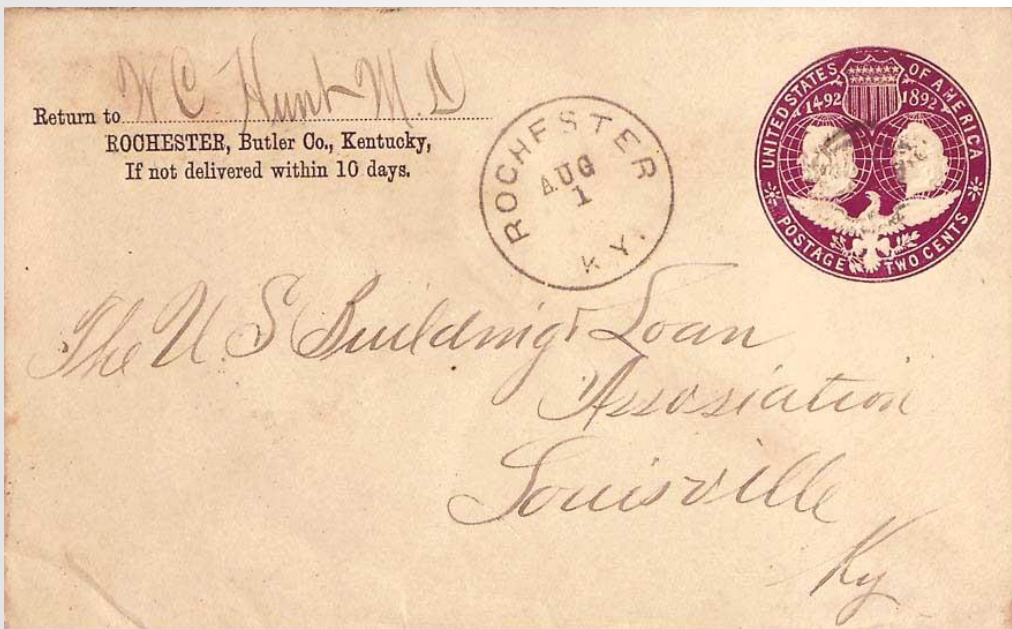 Return to W C Hunt M.D
ROCHESTER, Butler Co., Kentucky,
If not delivered within 10 days.
ROCHESTER
AUG
1
KY.
UNITED STATES OF AMERICA
1492 1892
POSTAGE TWO CENTS
The U. S Building & Loan
Assosiation
Louisville
Ky